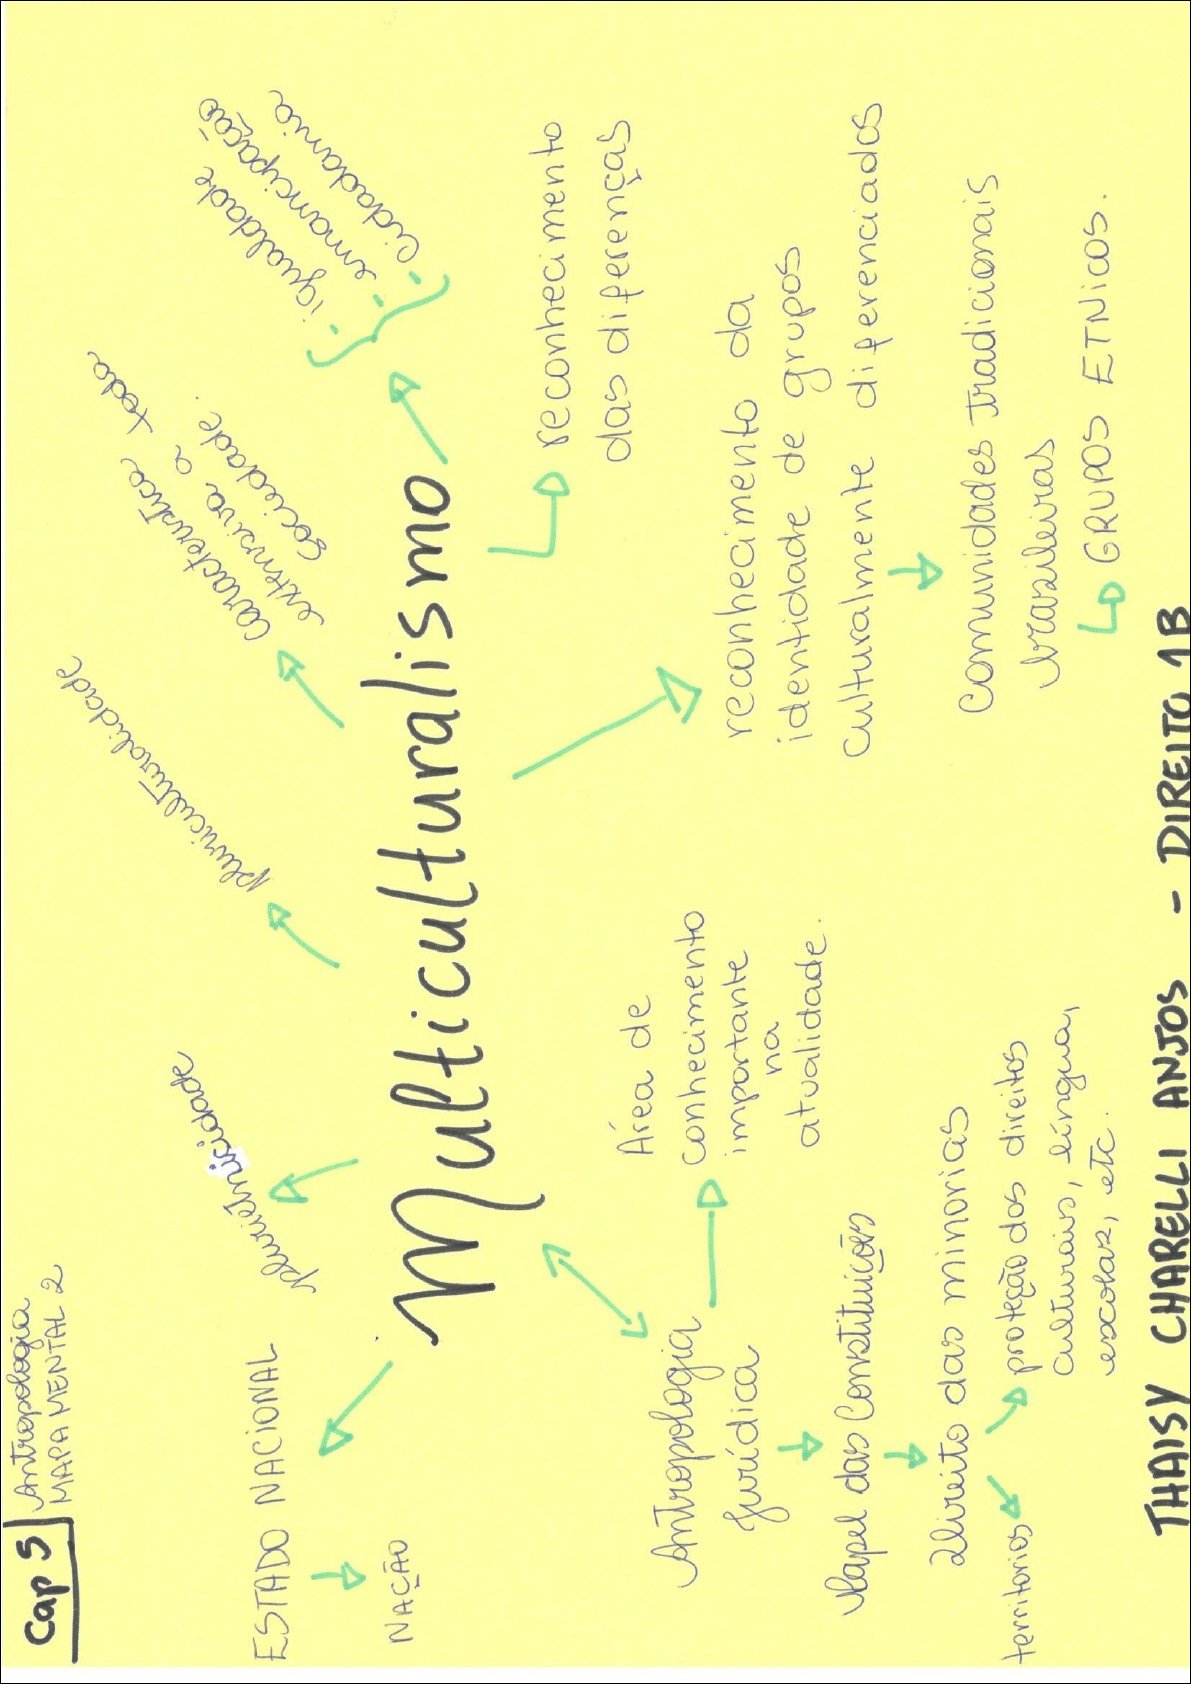 Cap 5
Antropologia
MAPA MENTAL 2
ESTADO NACIONAL
NAÇÃO
plurietnicidade
pluriculturalidade
característica
extensiva a toda
sociedade.
· igualdade
· emancipação
· cidadania
Multiculturalismo
reconhecimento
das diferenças
reconhecimento da
identidade de grupos
culturalmente diferenciados
comunidades tradicionais
brasileiras
GRUPOS ETNICOS.
Antropologia
Jurídica
Área de
conhecimento
importante
na
atualidade.
Papel das Constituições
Direito das minorias
territorios
proteção dos direitos
culturais, língua,
escolar, etc.
THAISY CHARELLI ANJOS - DIREITO 1B